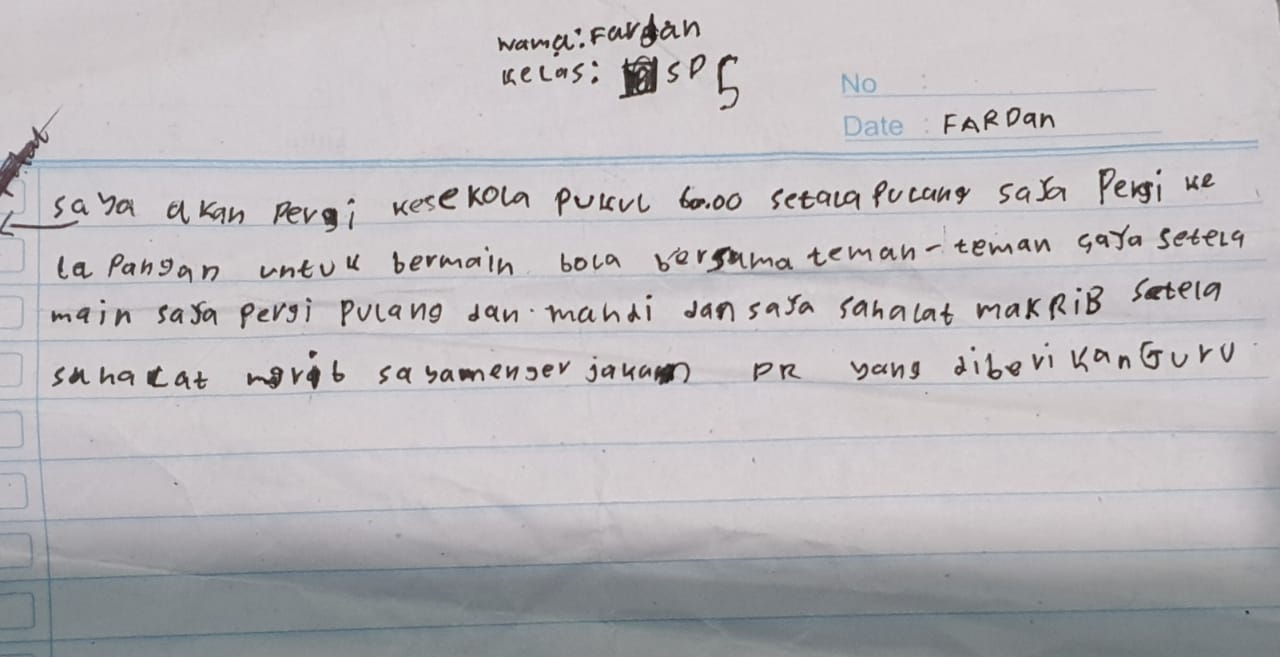 Nama: Fardan
Kelas: SD 5
No :
Date : FARDan
saya akan Pergi kesekola pukul 6.00 setala Pulang saya Pergi ke
la Pangan untuk bermain bola bersama teman-teman saya setela
main saya pergi Pulang dan mandi dan saya sahalat makRiB setela
sahalat mgrib sayamenger jakan PR yang diberi kan Guru